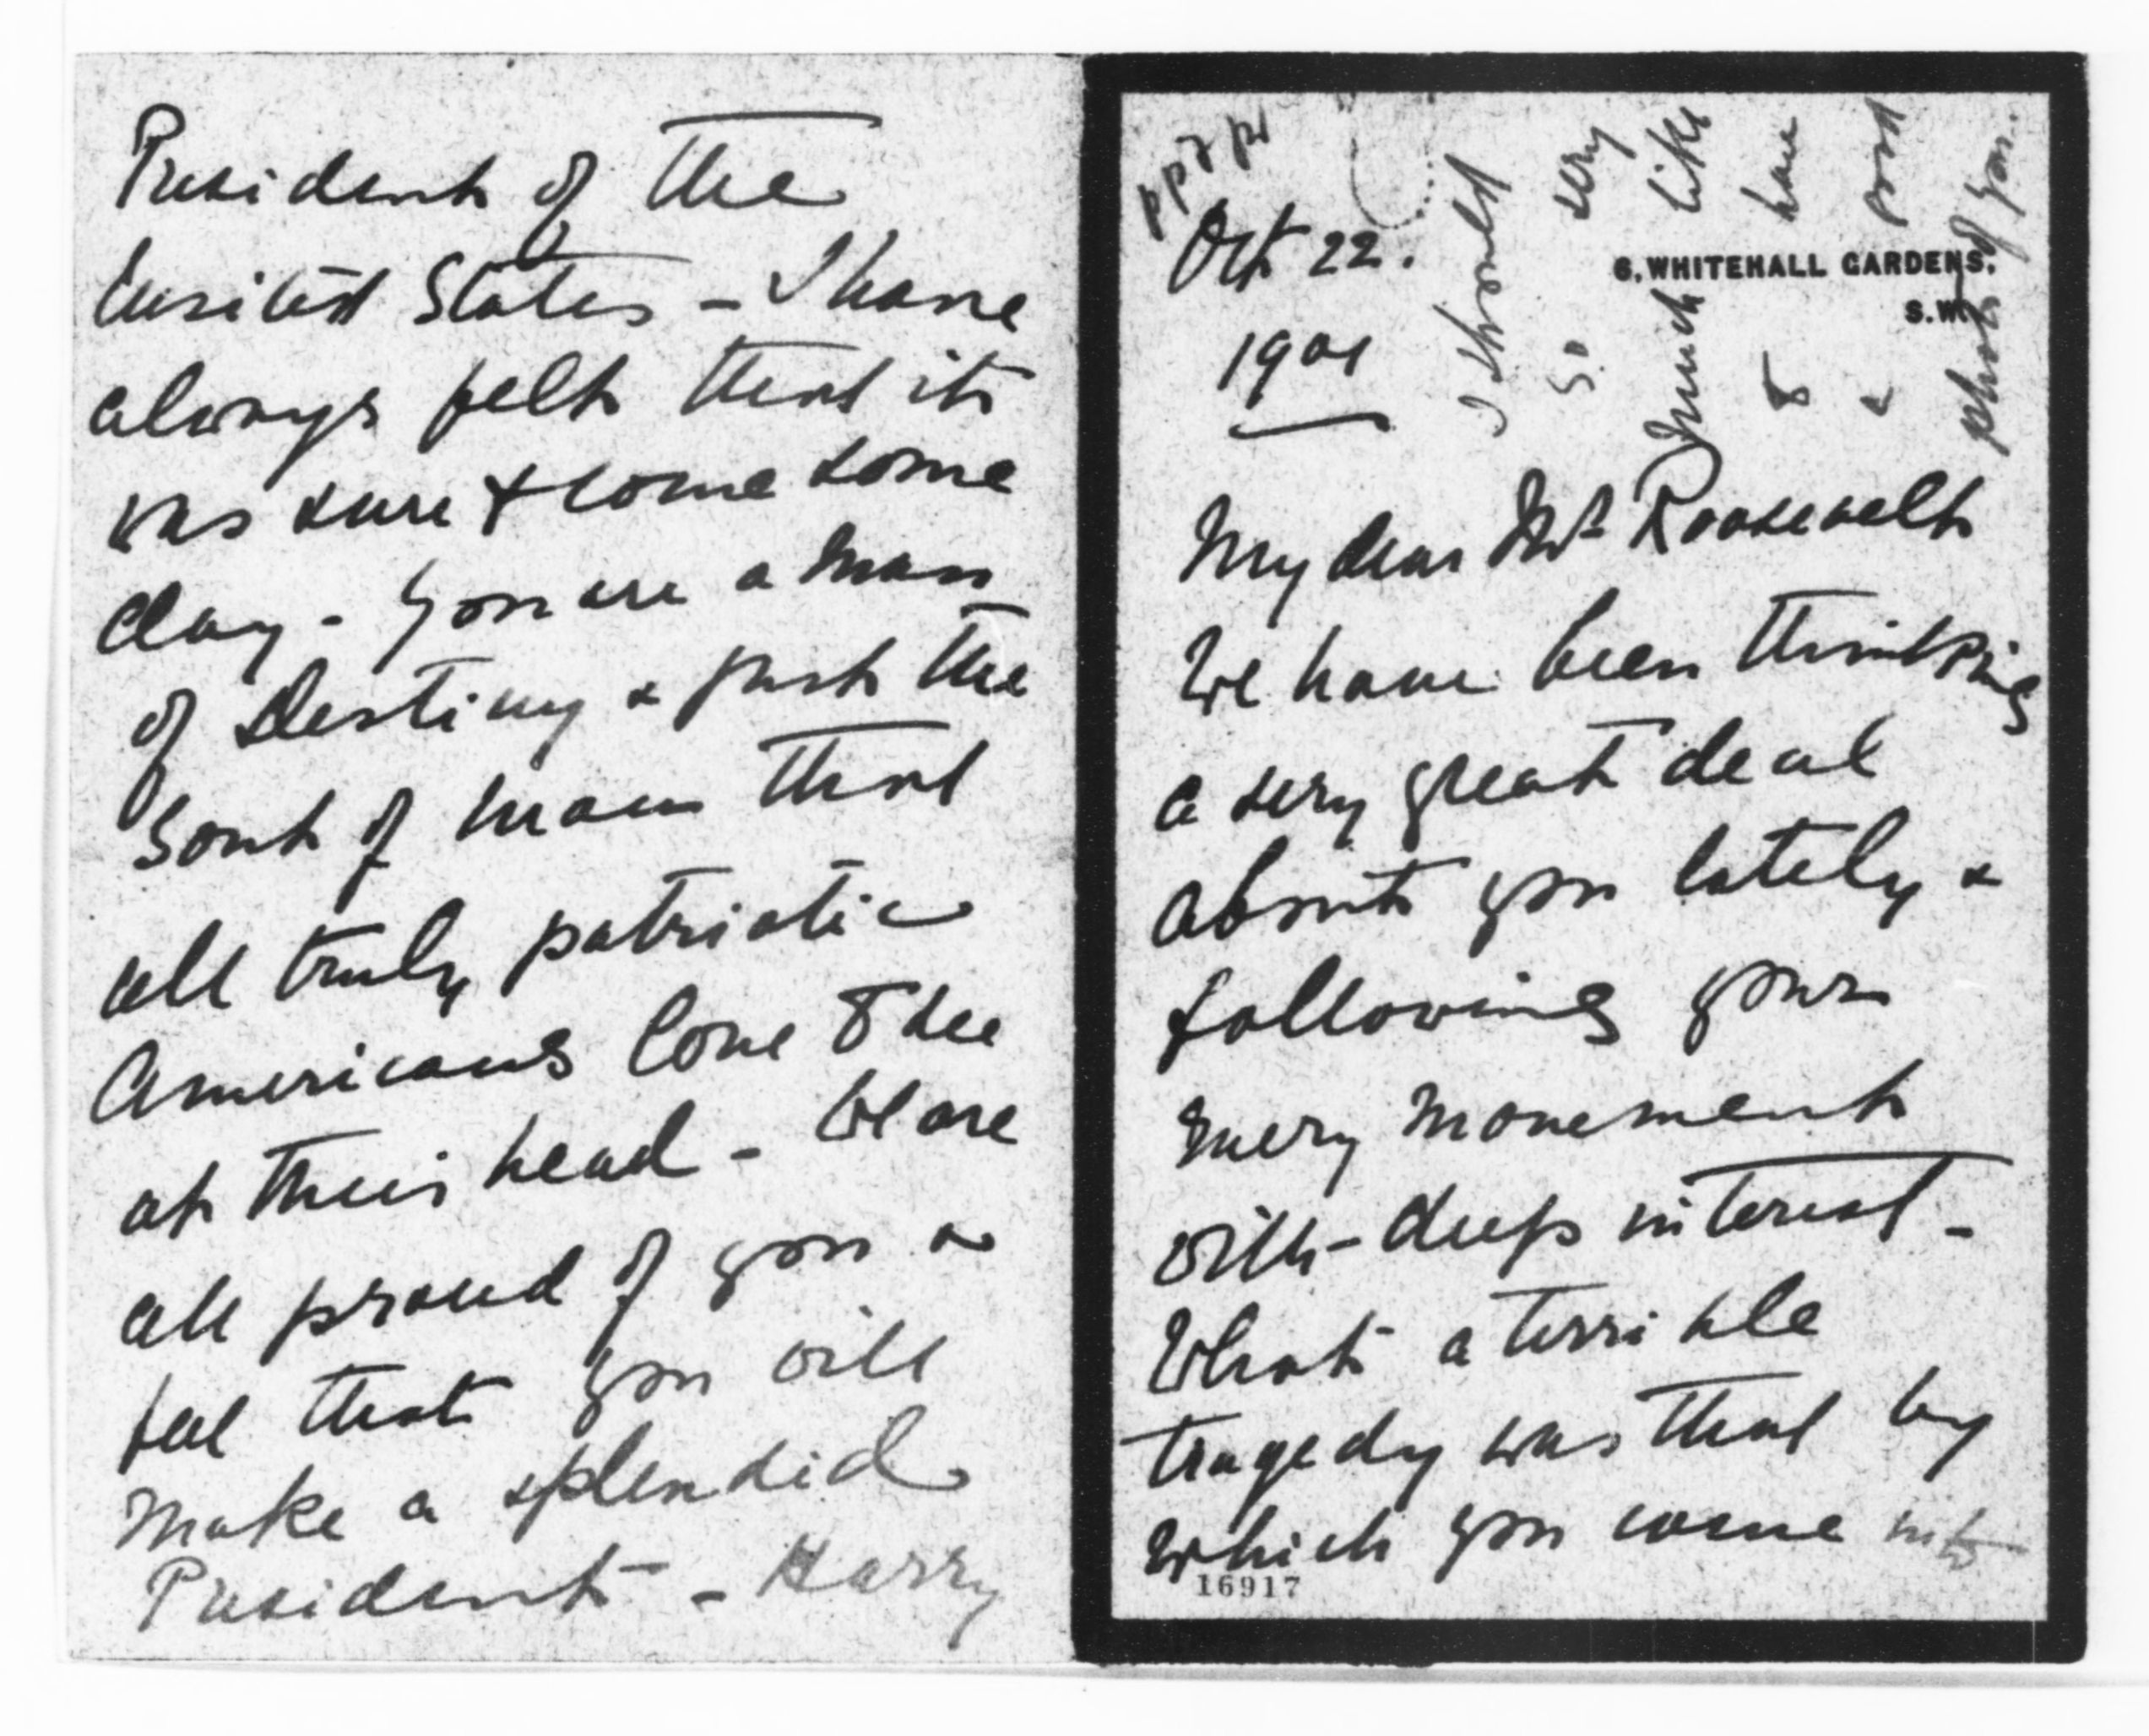 ppd pr
Oct 22.
1901
6, WHITEHALL GARDENS.
S.W.
I should
so very
much like
to have
a good
photo of you.
My dear Mr Roosevelt
We have been thinking
a very great deal
about you lately &
following your
every movement
with deep interest -
What a terrible
tragedy was that by
which you came into
16917
President of the
United States - I have
always felt that it
was sure to come some
day - You are a man
of Destiny & just the
sort of man that
all truly patriotic
Americans love to see
at their head - We are
all proud of you &
feel that you will
make a splendid
President - Harry